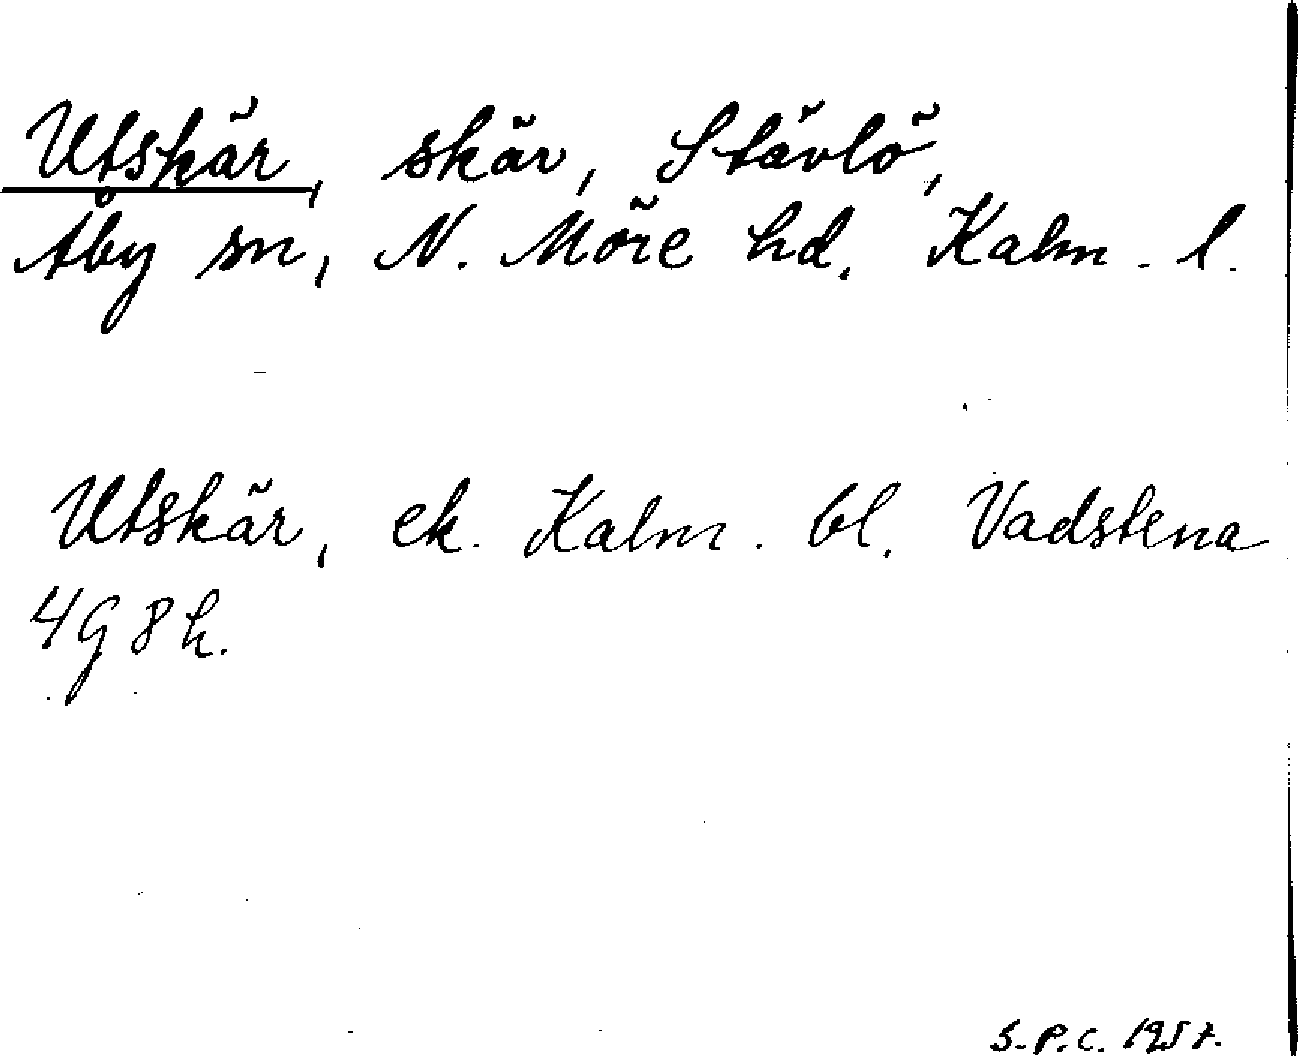 Utskär, skär, Stävlö,
Åby sn, N. Möre hd. Kalm. l.
Utskär, ek. Kalm. bl. Vadstena
4 g 8 h.
S.P.C. 1957.